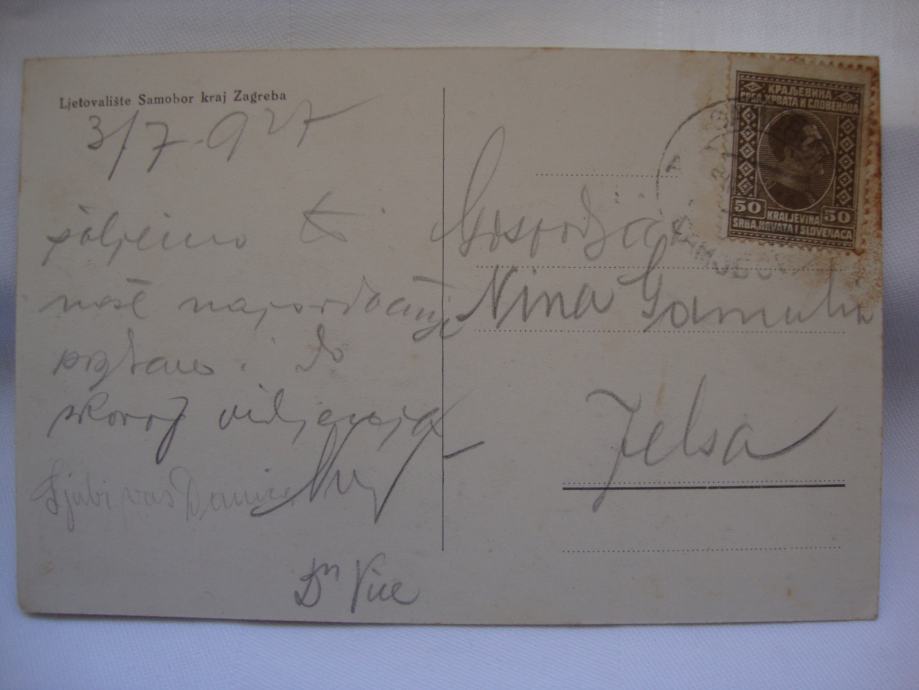 Ljetovalište Samobor kraj Zagreba
3/7. 927
šaljemo ti
naše najsrdačnije
pozdrave i do
skorog vidjenja
Ljubi vas Danica
Dr Vice
КРАЉЕВИНА
СРБА, ХРВАТА И СЛОВЕНАЦА
50 KRALJEVINA 50
SRBA, HRVATA I SLOVENACA
Gospodjica
Nina Gamulin
Jelsa